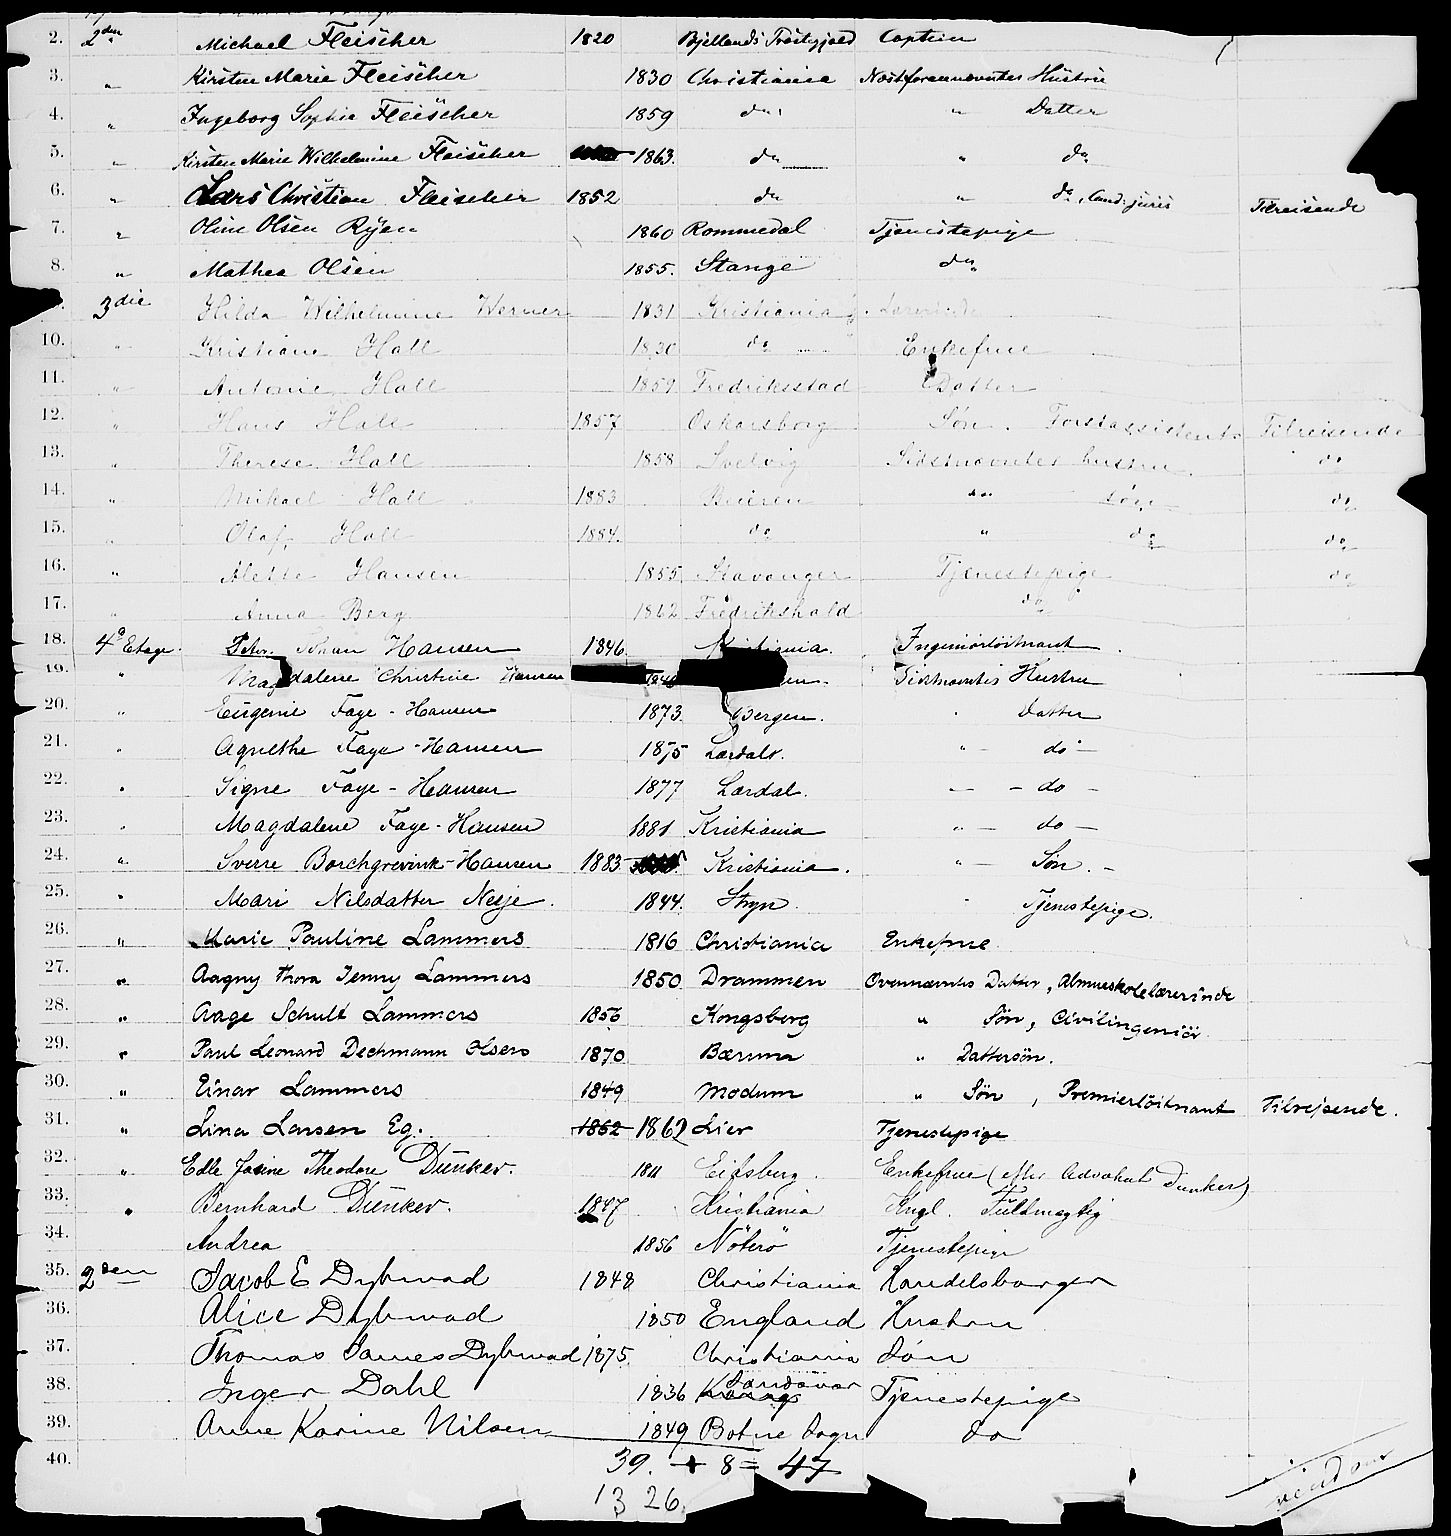 2. 2den Michael Fleischer 1820 Bjellands Præstegjeld Captein
3. " Kirsten Marie Fleischer 1830 Christiania Næstforannævntes Hustru
4. " Ingeborg Sophie Fleischer 1859 do " Datter
5. " Kirsten Marie Wilhelmine Fleischer 1863. do " do
6. " Lars Christian Fleischer 1852 do " do, Cand: juris Tilreisende
7. " Oline Olsen Ryen 1860 Rommedal Tjenestepige
8. " Mathea Olsen 1855. Stange do
3die Hilda Wilhelmine Werner 1831 Kristiania Lærerinde
10. " Kristiane Hall 1830 do Enkefrue
11. " Antonie Hall 1859 Fredriksstad Datter
12. " Hans Hall 1857 Oskarsborg Søn. Forstassistent Tilreisende
13. " Therese Hall 1858 Svelvig Sidstnævntes hustru do
14. " Mikael Hall 1883 Beieren " søn do
15. " Olaf Hall 1884. do " do do
16. " Alette Hansen 1855 Stavanger Tjenestepige do
17. " Anna Berg 1862 Fredrikshald do
18. 4de Etage Peter Johan Hansen 1846. Kristiania. Ingeniørløitnant
19. " Magdalene Christine Hansen 1848 Sidstnævntes Hustru
20. " Eugenie Faye-Hansen 1873. Bergen. " Datter
21. " Agnethe Faye-Hansen 1875 Lærdals. " - do -
22. " Signe Faye-Hansen 1877 Lærdal. - - do -
23. " Magdalene Faye-Hansen 1881 Kristiania " - do -
24. " Sverre Borchgrevink-Hansen 1883 Kristiania. " - Søn. -
25. " Mari Nilsdatter Nesje. 1844. Stryn " Tjenestepige.
26. " Marie Pauline Lammers 1816 Christiania Enkefrue
27. " Aagny Thora Jenny Lammers 1850 Drammen Ovennævntes Datter, Almueskolelærerinde
28. " Aage Schult Lammers 1856 Kongsberg " Søn, Civilingeniör
29. " Paul Leonard Dechmann Olsen 1870 Bærum " Dattersøn.
30. " Einar Lammers 1849 Modum " Søn, Premierløitnant Tilrejsende.
31. " Lina Larsen Eg. 1862 1862 Lier Tjenestepige
32. " Edle Jasine Theodore Dunker. 1811 Eidsberg. Enkefrue (efter Advokat Dunker)
33. " Bernhard Dunker. 1847 Kristiania Kngl. Fuldmægtig
34. Andrea 1856 Nøterø Tjenestepige
35. 2den Jacob E Dybwad 1848 Christiania Handelsborger
36. Alice Dybwad 1850 England Hustru
37. Thomas James Dybwad 1875. Christiania Søn
38. Inger Dahl 1836 Sandsvær Tjenestepige
39. Anne Karine Nilsen 1849 Botne Sogn do
40. 39. + 8 = 47
13 26.